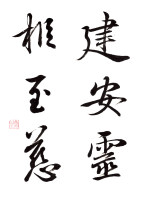 建安靈
柩至慈